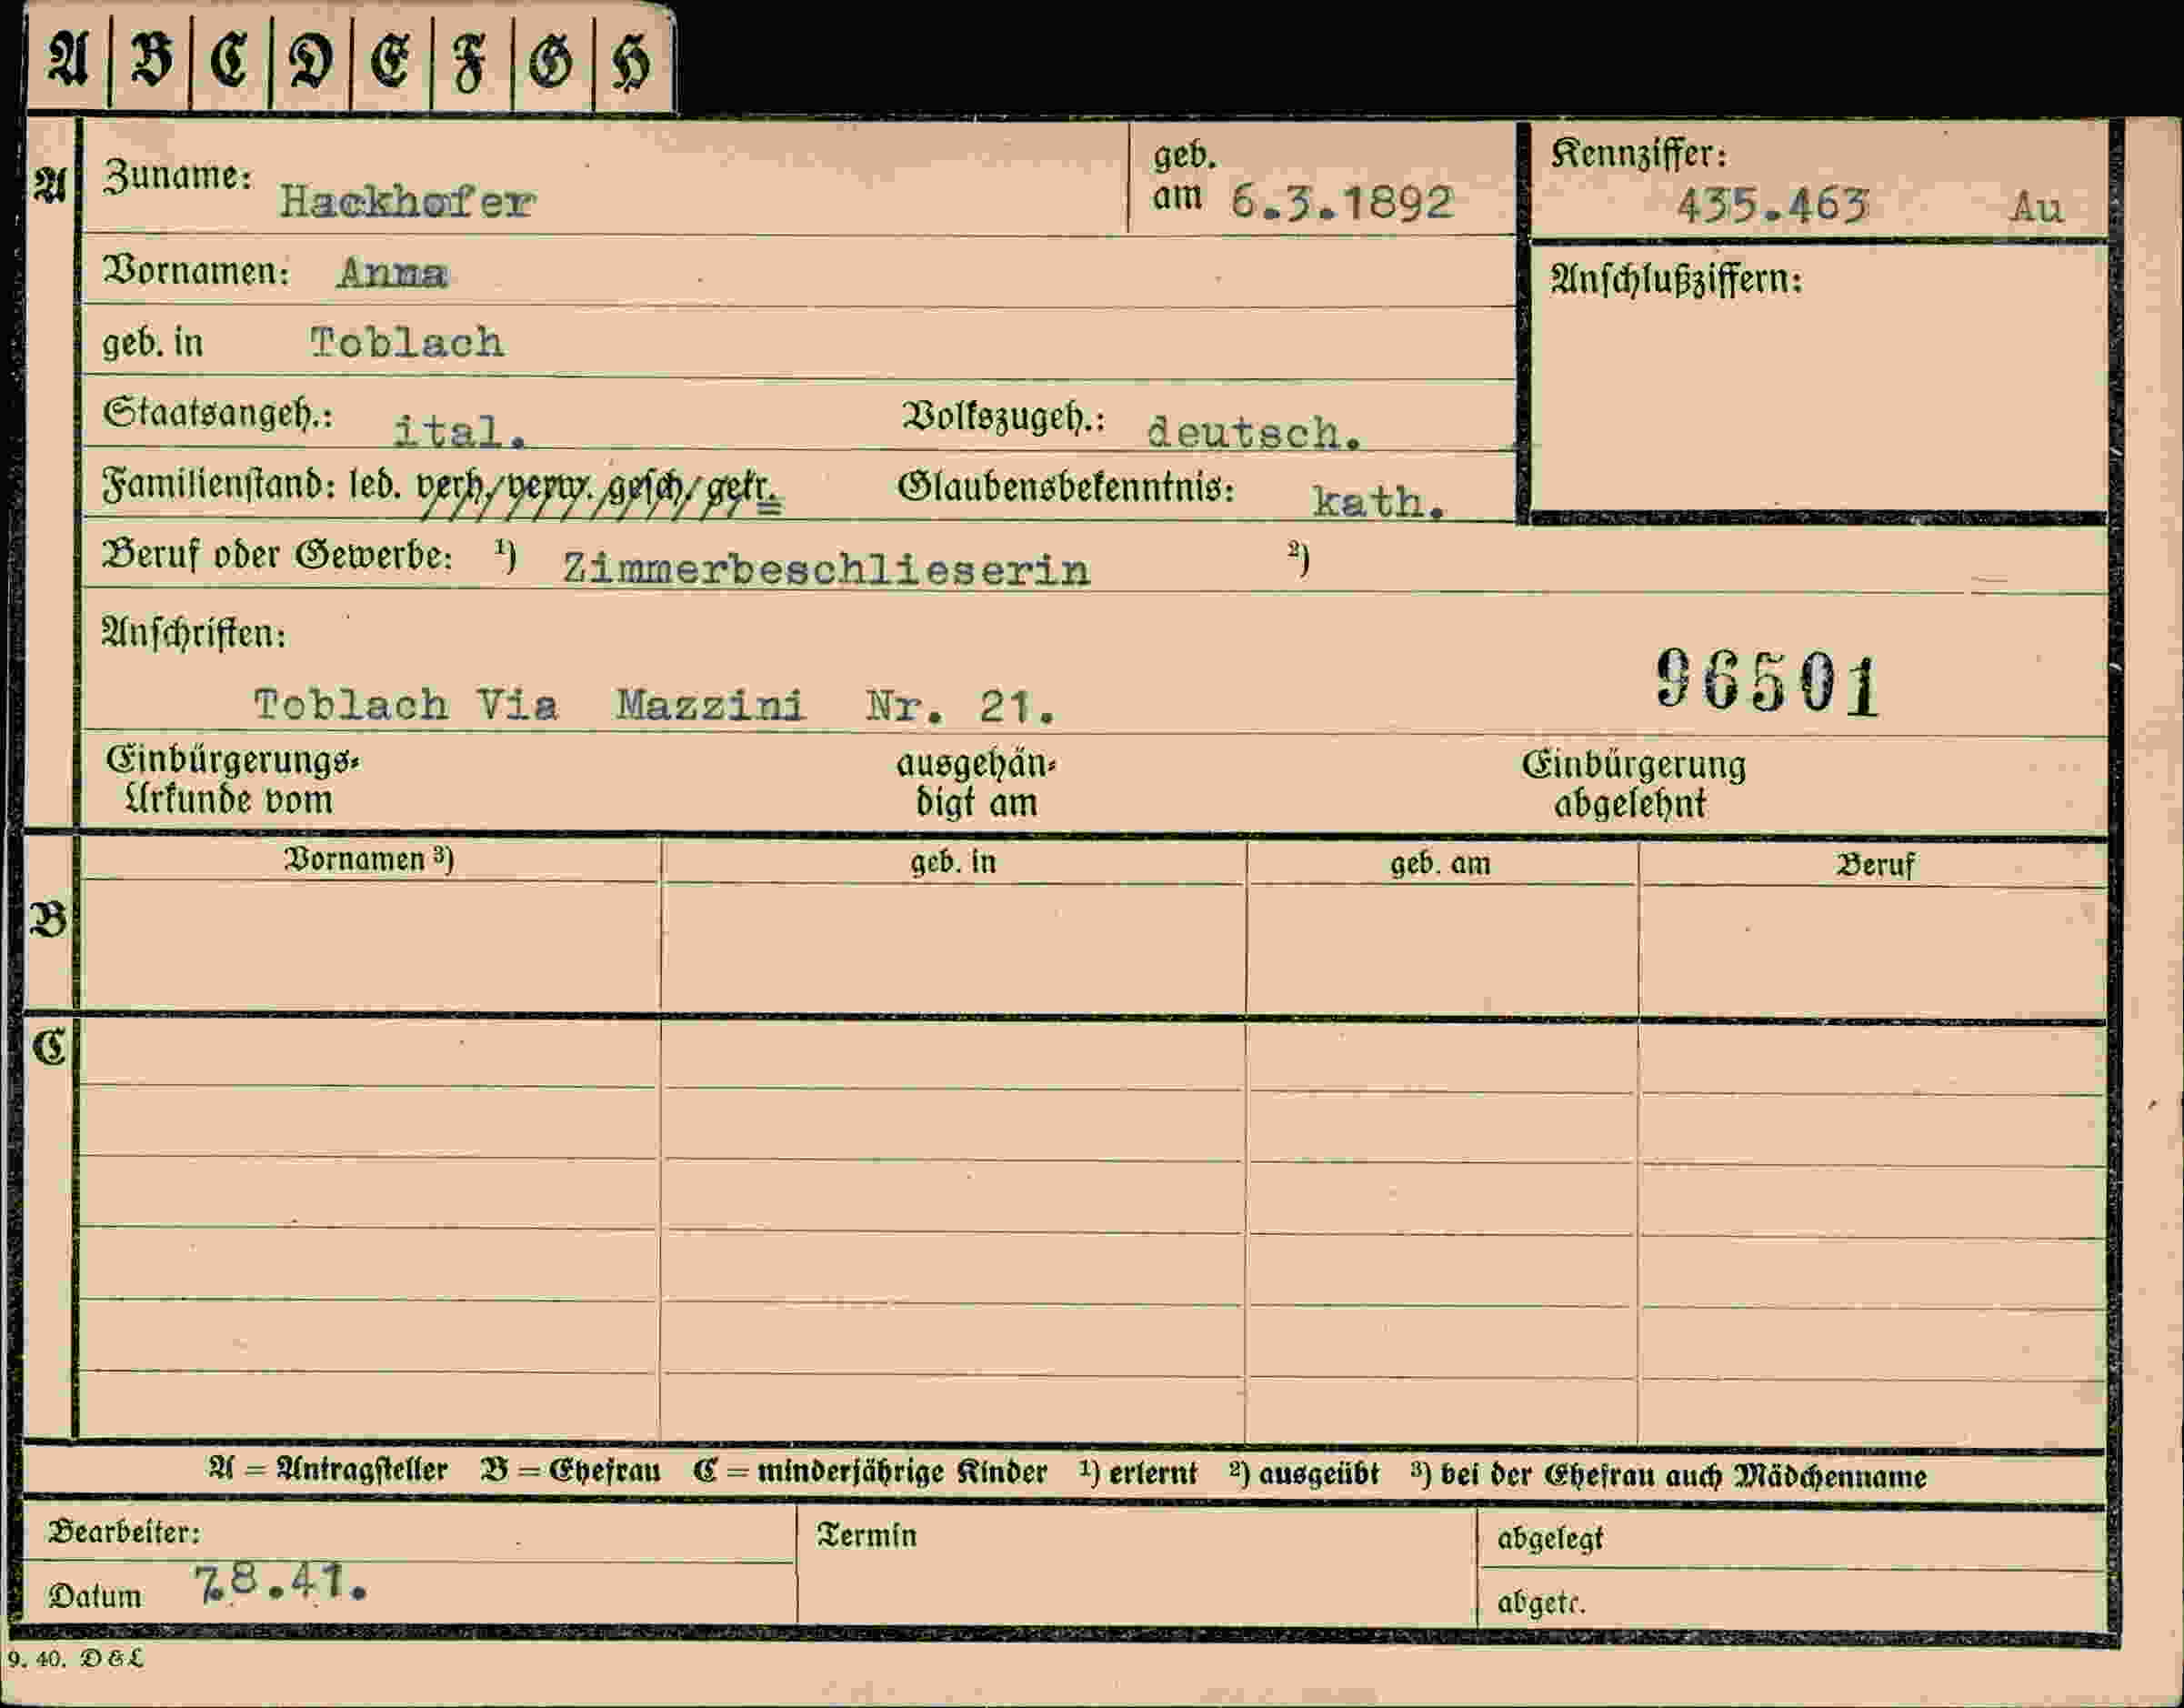 A B C D E F G H
A Zuname: Hackhofer geb. am 6.3.1892 Kennziffer: 435.463 Au
Vornamen: Anna Anschlußziffern:
geb. in Toblach
Staatsangeh.: ital. Volkszugeh.: deutsch.
Familienstand: led. verh./verw./gesch/getr. Glaubensbekenntnis: kath.
Beruf oder Gewerbe: ¹) Zimmerbeschlieserin ²)
Anschriften:
96501
Toblach Via Mazzini Nr. 21.
Einbürgerungs- ausgehän- Einbürgerung
Urkunde vom digt am abgelehnt
Vornamen ³) geb. in geb. am Beruf
B
C
A = Antragsteller B = Ehefrau C = minderjährige Kinder ¹) erlernt ²) ausgeübt ³) bei der Ehefrau auch Mädchenname
Bearbeiter: Termin abgelegt
Datum 7.8.41. abgetr.
9. 40. D & L